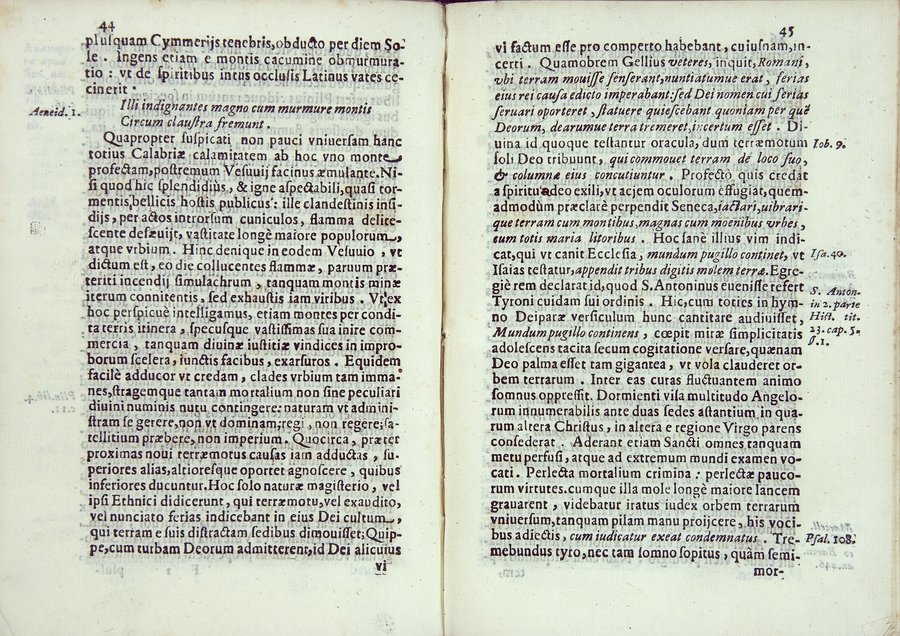 44
plusquam Cymmerijs tenebris, obducto per diem So-
le. Ingens etiam e montis cacumine obmurmura-
tio: vt de spiritibus intus occlusis Latinus vates ce-
cinerit.
Aeneid. 1.
Illi indignantes magno cum murmure montis
Circum claustra fremunt.
Quapropter suspicati non pauci vniuersam hanc
totius Calabriæ calamitatem ab hoc vno monte
profectam, postremum Vesuuij facinus æmulante. Ni-
si quod hic splendidius, & igne aspectabili, quasi tor-
mentis bellicis hostis publicus: ille clandestinis insi-
dijs, per actos introrsum cuniculos, flamma delite-
scente desæuijt, vastitate longè maiore populorum,
atque vrbium. Hinc denique in eodem Vesuuio, vt
dictum est, eo die collucentes flammæ, paruum præ-
teriti incendij simulachrum, tanquam montis minæ
iterum connitentis, sed exhaustis iam viribus. Vt ex
hoc perspicuè intelligamus, etiam montes per condi-
ta terris itinera, specusque vastissimas sua inire com-
mercia, tanquam diuinæ iustitiæ vindices in impro-
borum scelera, iunctis facibus, exarsuros. Equidem
facilè adducor vt credam, clades vrbium tam imma-
nes, stragemque tantam mortalium non sine peculiari
diuini numinis nutu contingere: naturam vt admini-
stram se gerere, non vt dominam; regi, non regere; sa-
tellitium præbere, non imperium. Quocirca, præter
proximas noui terræmotus causas iam adductas, su-
periores alias, altioresque oportet agnoscere, quibus
inferiores ducuntur. Hoc solo naturæ magisterio, vel
ipsi Ethnici didicerunt, qui terræmotu, vel exaudito,
vel nunciato ferias indicebant in eius Dei cultum,
qui terram e suis distractam sedibus dimouisset; Quip-
pe, cum turbam Deorum admitterent, id Dei alicuius
vi
45
vi factum esse pro comperto habebant, cuiusnam, in-
certi. Quamobrem Gellius veteres, inquit, Romani,
vbi terram mouisse senserant, nuntiatumue erat, ferias
eius rei causa edicto imperabant: sed Dei nomen cui ferias
seruari oporteret, statuere quiescebant quoniam per quē
Deorum, dearumue terra tremeret, incertum esset. Di-
uina id quoque testantur oracula, dum terræmotum
Iob. 9.
soli Deo tribuunt, qui commouet terram de loco suo,
& columnæ eius concutiuntur. Profecto quis credat
a spiritu adeo exili, vt aciem oculorum effugiat, quem-
admodùm præclarè perpendit Seneca, iactari, vibrari-
que terram cum montibus, magnas cum moenibus vrbes,
cum totis maria litoribus. Hoc sanè illius vim indi-
cat, qui vt canit Ecclesia, mundum pugillo continet, vt
Isa. 40.
Isaias testatur, appendit tribus digitis molem terræ. Egre-
giè rem declarat id, quod S. Antoninus euenisse refert
S. Anton-
in 2. parte
Hist. tit.
23. cap. 5.
§. 1.
Tyroni cuidam sui ordinis. Hic, cum toties in hym-
no Deiparæ versiculum hunc cantitare audiuisset,
Mundum pugillo continens, cœpit miræ simplicitatis
adolescens tacita secum cogitatione versare, quænam
Deo palma esset tam gigantea, vt vola clauderet or-
bem terrarum. Inter eas curas fluctuantem animo
somnus oppressit. Dormienti visa multitudo Angelo-
rum innumerabilis ante duas sedes astantium in qua-
rum altera Christus, in altera e regione Virgo parens
consederat. Aderant etiam Sancti omnes tanquam
metu perfusi, atque ad extremum mundi examen vo-
cati. Perlecta mortalium crimina: perlectæ pauco-
rum virtutes. cumque illa mole longè maiore lancem
grauarent, videbatur iratus iudex orbem terrarum
vniuersum, tanquam pilam manu proijcere, his voci-
bus adiectis, cum iudicatur exeat condemnatus. Tre-
Psal. 108.
mebundus tyro, nec tam somno sopitus, quàm semi-
mor-